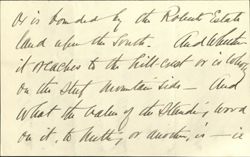 Or is bounded by the Roberts Estate
land upon the South. And Whether
it reaches to the hill-crest or is
on the steep mountain side - And
What the Value of the Standing wood
on it, to Müth, or another, is - is